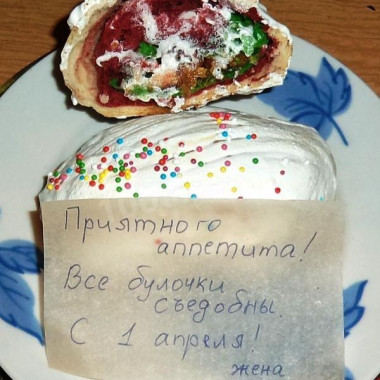 Приятного
аппетита!
Все булочки
съедобны.
С 1 апреля!
жена